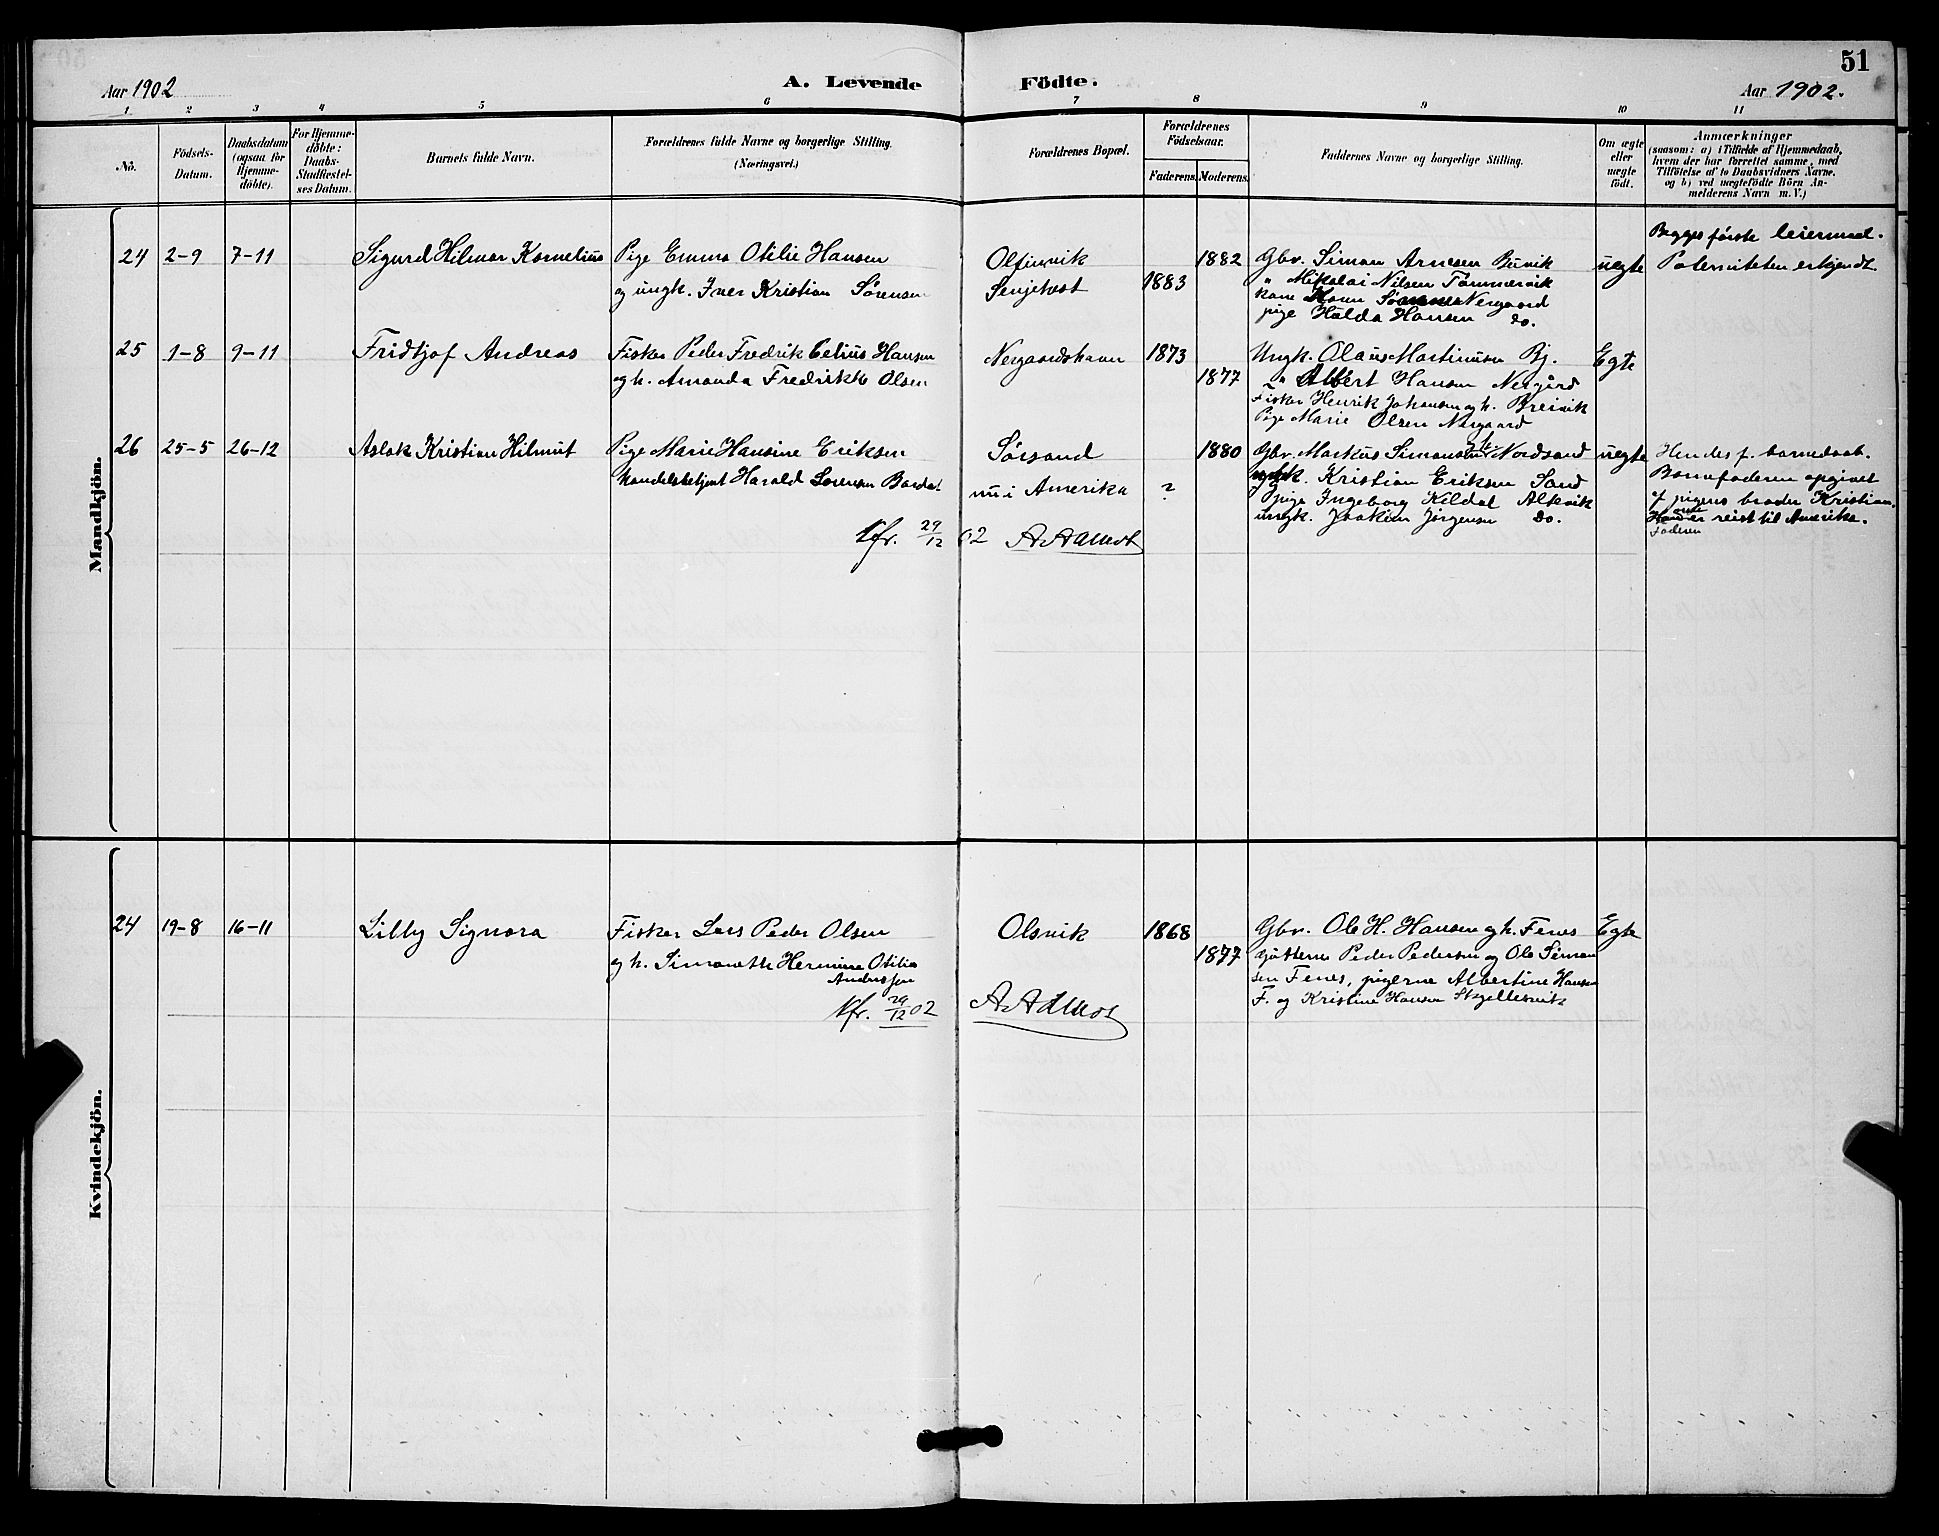 51
Aar 1902
A. Levende Födte.
Aar 1902.
1 2 3 4 5 6 7 8 9 10 11
No.
Födsels-
Datum.
Daabsdatum
(ogsaa for
Hjemme-
döbte).
For Hjemme-
döbte:
Daabs-
Stadfæstel-
ses Datum.
Barnets fulde Navn.
Forældrenes fulde Navne og borgerlige Stilling.
(Næringsvei.)
Forældrenes Bopæl.
Forældrenes
Födselsaar.
Faderens. Moderens.
Faddernes Navne og borgerlige Stilling.
Om ægte
eller
uægte
födt.
Anmærkninger
(saasom: a) i Tilfælde af Hjemmedaab,
hvem der har forrettet samme, med
Tilföielse af to Daabsvidners Navne,
og b) ved uægtefödte Börn An-
melderens Navn m. V.)
Mandkjön.
24 2-9 7-11 Sigurd Hilmar Kornelius
Pige Emma Otilie Hansen
og ungk. Iver Kristian Sørensen
Senjehest
1883
1882
Gbr. Simon Arnesen
" Nikolai Nilsen Tømmervik
kone
pige Hulda Hansen do.
uegte
Begges første leiermaal.
Paterniteten erkjendt.
25 1-8 9-11 Fridtjof Andreas
Fisker Peder Fredrik Celius Hansen
og h. Amanda Fredrikke Olsen
Nergaardshavn
1873
1877
Ungk. Olaus Martinusen Bj.
" Albert Hansen Nergård
Fisker Henrik Johansen og h. Breivik
Pige Marie Olsen Nergaard
Egte
26 25-5 26-12 Aslak Kristian Hilmut
Pige Marie Hansine Eriksen
Handelsbetjent Harald Sørensen
Sørsand
nu i Amerika
?
1880
Gbr. Markus Simonsen Nordsand
ungk. Kristian Eriksen Sand
pige Ingeborg Kildal Alkvik
ungk. Joakim Jørgensen do.
uegte
Hendes f. barnedaab.
Barnefaderen opgivet
af pigens broder Kristian.
er reist til Amerika.
Faderen
Kfr. 29/12 02
Kvindekjön.
24 19-8 16-11 Lilly Signora
Fisker Lars Peder Olsen
og h. Simonette Hermine Otilie
Andressen
Olsvik
1868
1877
Gbr. Ole H. Hansen og h. Fenes
gutterne Peder Pedersen og Ole Simon
sen Fenes, pigerne Albertine Hansen
F. og Kristine Hansen
Egte
Kfr. 29/12 02